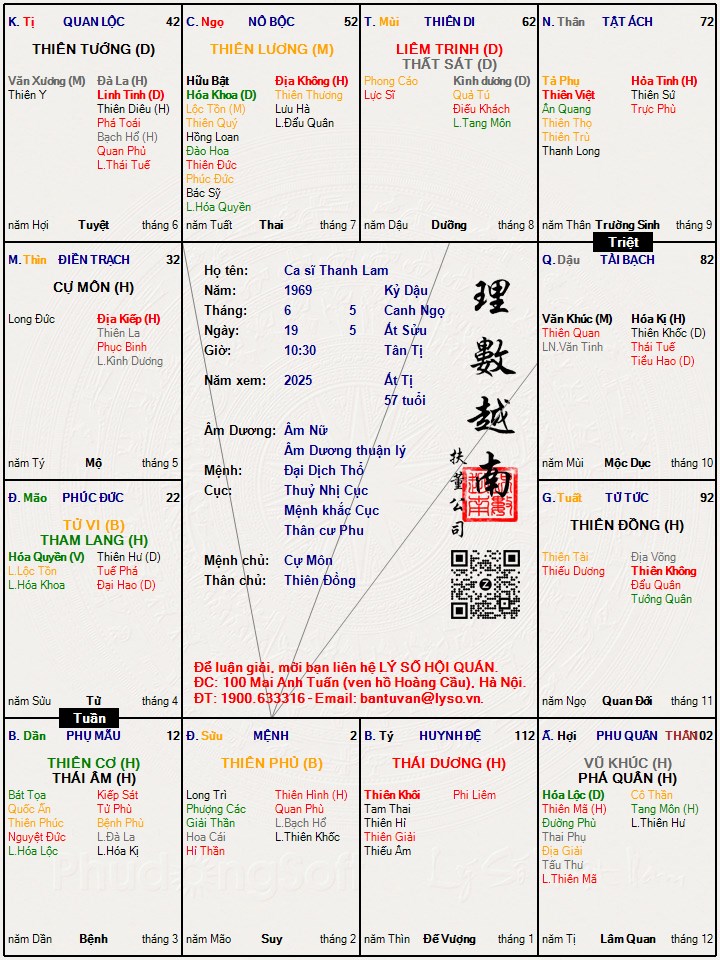 K. Tị QUAN LỘC 42
THIÊN TƯỚNG (D)
Văn Xương (M) Đà La (H)
Thiên Y Linh Tinh (D)
Thiên Diêu (H)
Phá Toái
Bạch Hổ (H)
Quan Phủ
L.Thái Tuế
năm Hợi Tuyệt tháng 6
C. Ngọ NÔ BỘC 52
THIÊN LƯƠNG (M)
Hữu Bật Địa Không (H)
Hóa Khoa (D) Thiên Thương
Lộc Tồn (M) Lưu Hà
Thiên Quý L.Đẩu Quân
Hồng Loan
Đào Hoa
Thiên Đức
Phúc Đức
Bác Sỹ
L.Hóa Quyền
năm Tuất Thai tháng 7
T. Mùi THIÊN DI 62
LIÊM TRINH (D)
THẤT SÁT (D)
Phong Cáo Kình dương (D)
Lực Sĩ Quả Tú
Điếu Khách
L.Tang Môn
năm Dậu Dưỡng tháng 8
N. Thân TẬT ÁCH 72
Tả Phụ Hỏa Tinh (H)
Thiên Việt Thiên Sứ
Ân Quang Trực Phù
Thiên Thọ
Thiên Trù
Thanh Long
năm Thân Trường Sinh tháng 9
Triệt
M. Thìn ĐIỀN TRẠCH 32
CỰ MÔN (H)
Long Đức Địa Kiếp (H)
Thiên La
Phục Binh
L.Kình Dương
năm Tý Mộ tháng 5
Họ tên: Ca sĩ Thanh Lam
Năm: 1969 Kỷ Dậu
Tháng: 6 5 Canh Ngọ
Ngày: 19 5 Ất Sửu
Giờ: 10:30 Tân Tị
Năm xem: 2025 Ất Tị
57 tuổi
Âm Dương: Âm Nữ
Âm Dương thuận lý
Mệnh: Đại Dịch Thổ
Cục: Thuỷ Nhị Cục
Mệnh khắc Cục
Thân cư Phu
Mệnh chủ: Cự Môn
Thân chủ: Thiên Đồng
理數越南
扶董公司
Để luận giải, mời bạn liên hệ LÝ SỐ HỘI QUÁN.
ĐC: 100 Mai Anh Tuấn (ven hồ Hoàng Cầu), Hà Nội.
ĐT: 1900.633316 - Email: bantuvan@lyso.vn.
Q. Dậu TÀI BẠCH 82
Văn Khúc (M) Hóa Kị (H)
Thiên Quan Thiên Khốc (D)
LN.Văn Tinh Thái Tuế
Tiểu Hao (D)
năm Mùi Mộc Dục tháng 10
Đ. Mão PHÚC ĐỨC 22
TỬ VI (B)
THAM LANG (H)
Hóa Quyền (V) Thiên Hư (D)
L.Lộc Tồn Tuế Phá
L.Hóa Khoa Đại Hao (D)
năm Sửu Tử tháng 4
Tuần
G. Tuất TỬ TỨC 92
THIÊN ĐỒNG (H)
Thiên Tài Địa Võng
Thiếu Dương Thiên Không
Đẩu Quân
Tướng Quân
năm Ngọ Quan Đới tháng 11
B. Dần PHỤ MẪU 12
THIÊN CƠ (H)
THÁI ÂM (H)
Bát Tọa Kiếp Sát
Quốc Ấn Tử Phù
Thiên Phúc Bệnh Phù
Nguyệt Đức L.Đà La
L.Hóa Lộc L.Hóa Kị
năm Dần Bệnh tháng 3
Đ. Sửu MỆNH 2
THIÊN PHỦ (B)
Long Trì Thiên Hình (H)
Phượng Các Quan Phù
Giải Thần L.Bạch Hổ
Hoa Cái L.Thiên Khốc
Hỉ Thần
năm Mão Suy tháng 2
B. Tý HUYNH ĐỆ 112
THÁI DƯƠNG (H)
Thiên Khôi Phi Liêm
Tam Thai
Thiên Hỉ
Thiên Giải
Thiếu Âm
năm Thìn Đế Vượng tháng 1
Ấ. Hợi PHU QUÂN THÂN 102
VŨ KHÚC (H)
PHÁ QUÂN (H)
Hóa Lộc (D) Cô Thần
Thiên Mã (H) Tang Môn (H)
Đường Phù L.Thiên Hư
Thai Phụ
Địa Giải
Tấu Thư
L.Thiên Mã
năm Tị Lâm Quan tháng 12